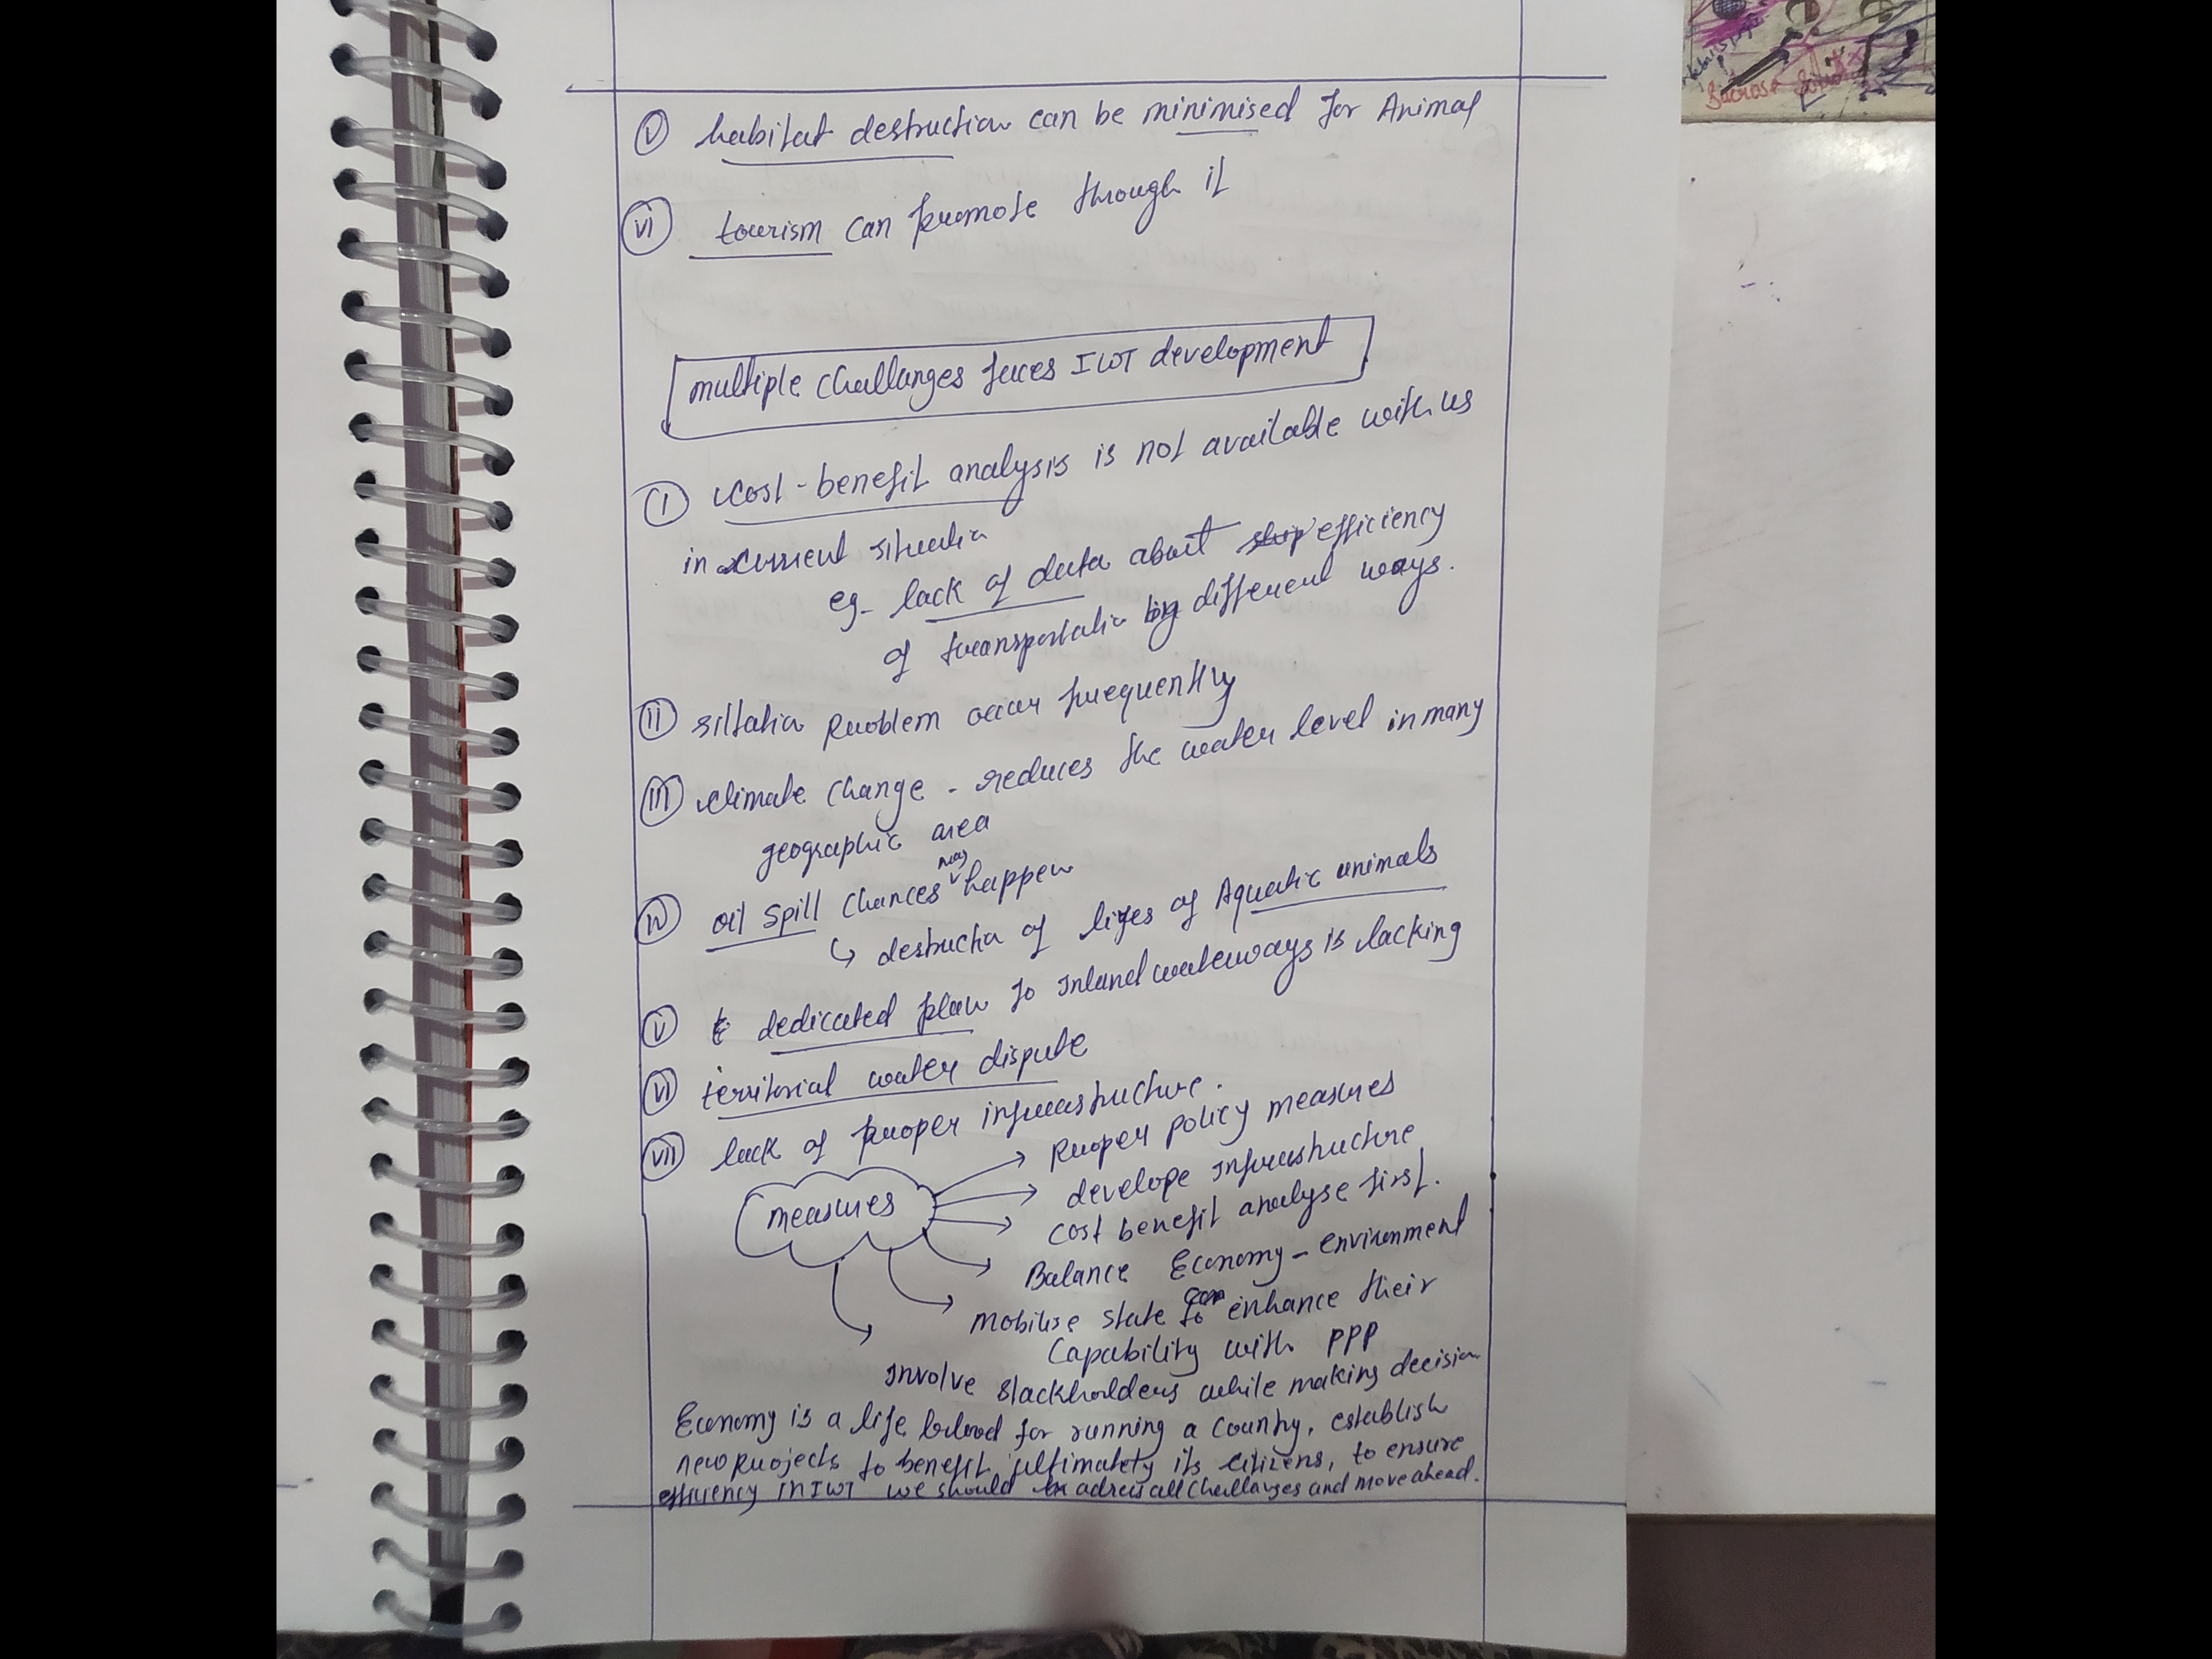 (v) habitat destruction can be minimised for Animal
(vi) tourism can promote through it
multiple challanges faces IWT development
(i) cost-benefit analysis is not available with us
in current situation
eg- lack of data about efficiency
of transportation by different ways.
(ii) siltation problem occur frequently
(iii) climate change - reduces the water level in many
geographic area
(iv) oil spill chances may happen
↳ destruction of lives of Aquatic animals
(v) dedicated plan to Inland waterways is lacking
(vi) territorial water dispute
(vii) lack of proper infrastructure.
measures
→ Proper policy measures
→ develope Infrastructure
→ cost benefit analyse first.
→ Balance Economy - environment
→ mobilise state to enhance their
capability with PPP
→ Involve stackholders while making decision
Economy is a life blood for running a country, establish
new projects to benefit ultimately its citizens, to ensure
efficiency in IWT we should adress all challanges and move ahead.